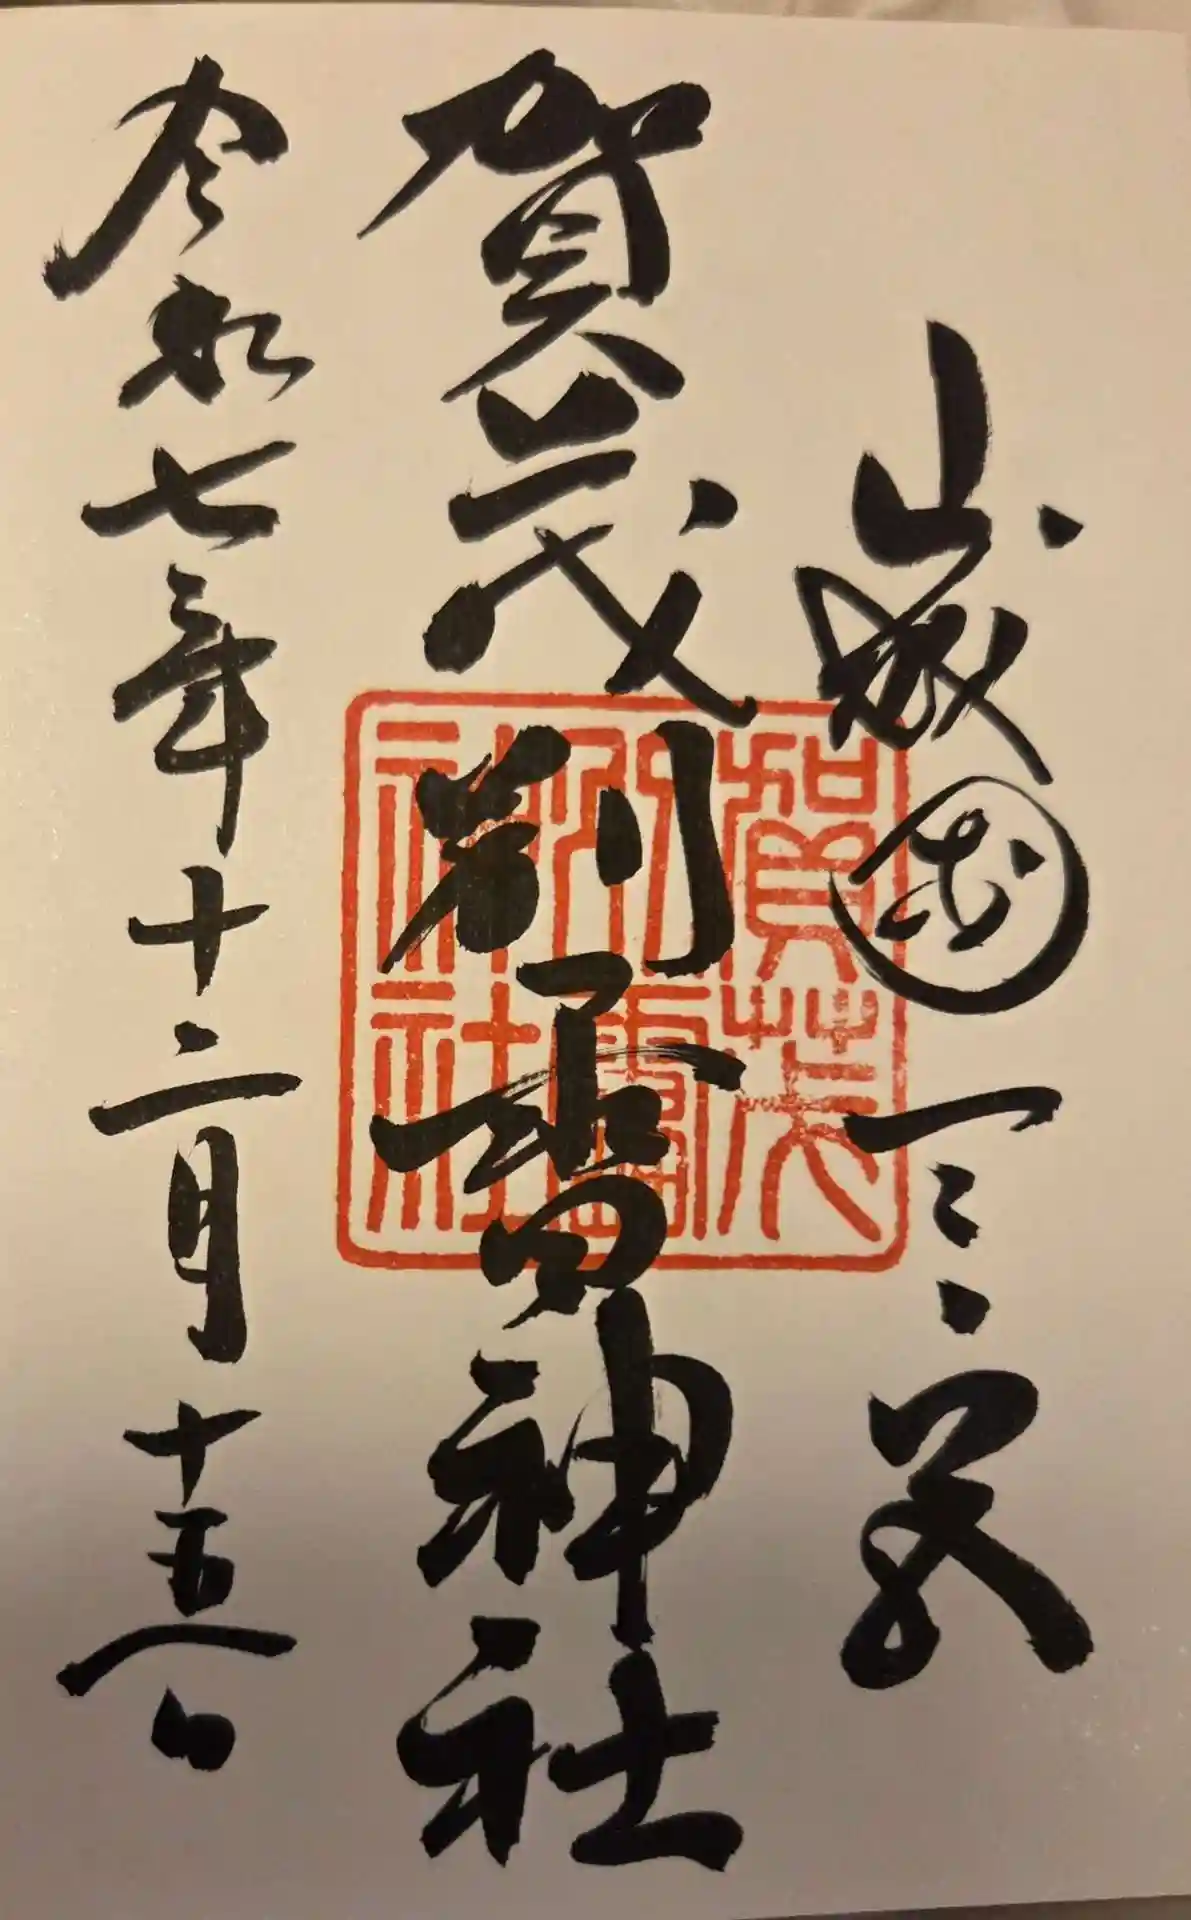 山城國一之宮
賀茂別雷神社
令和七年十二月十五日
賀茂
別雷
神社